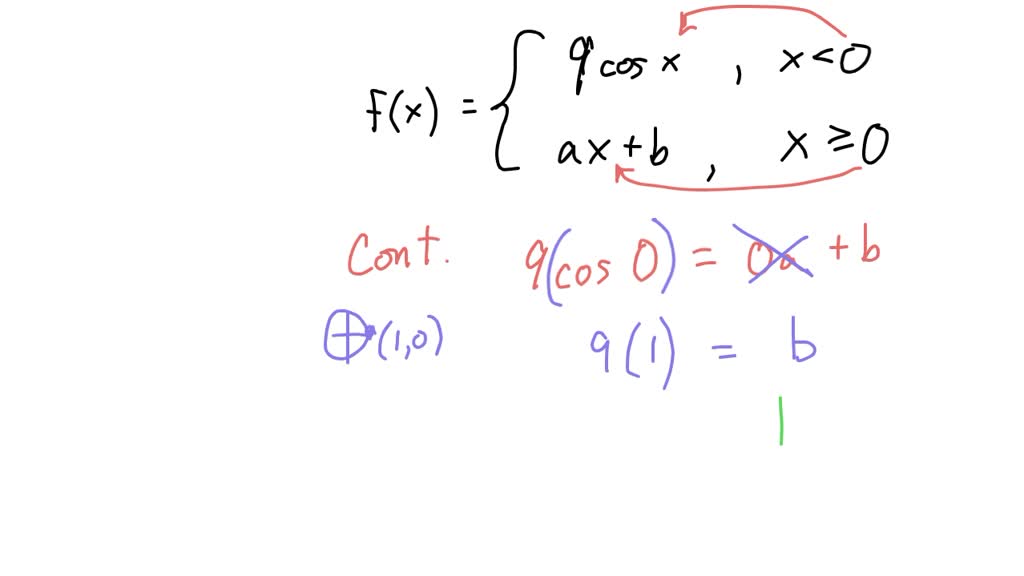 f(x) = { 9 cos x , x < 0
ax + b , x ≥ 0
Cont. 9(cos 0) = 0a + b
(1,0) 9(1) = b